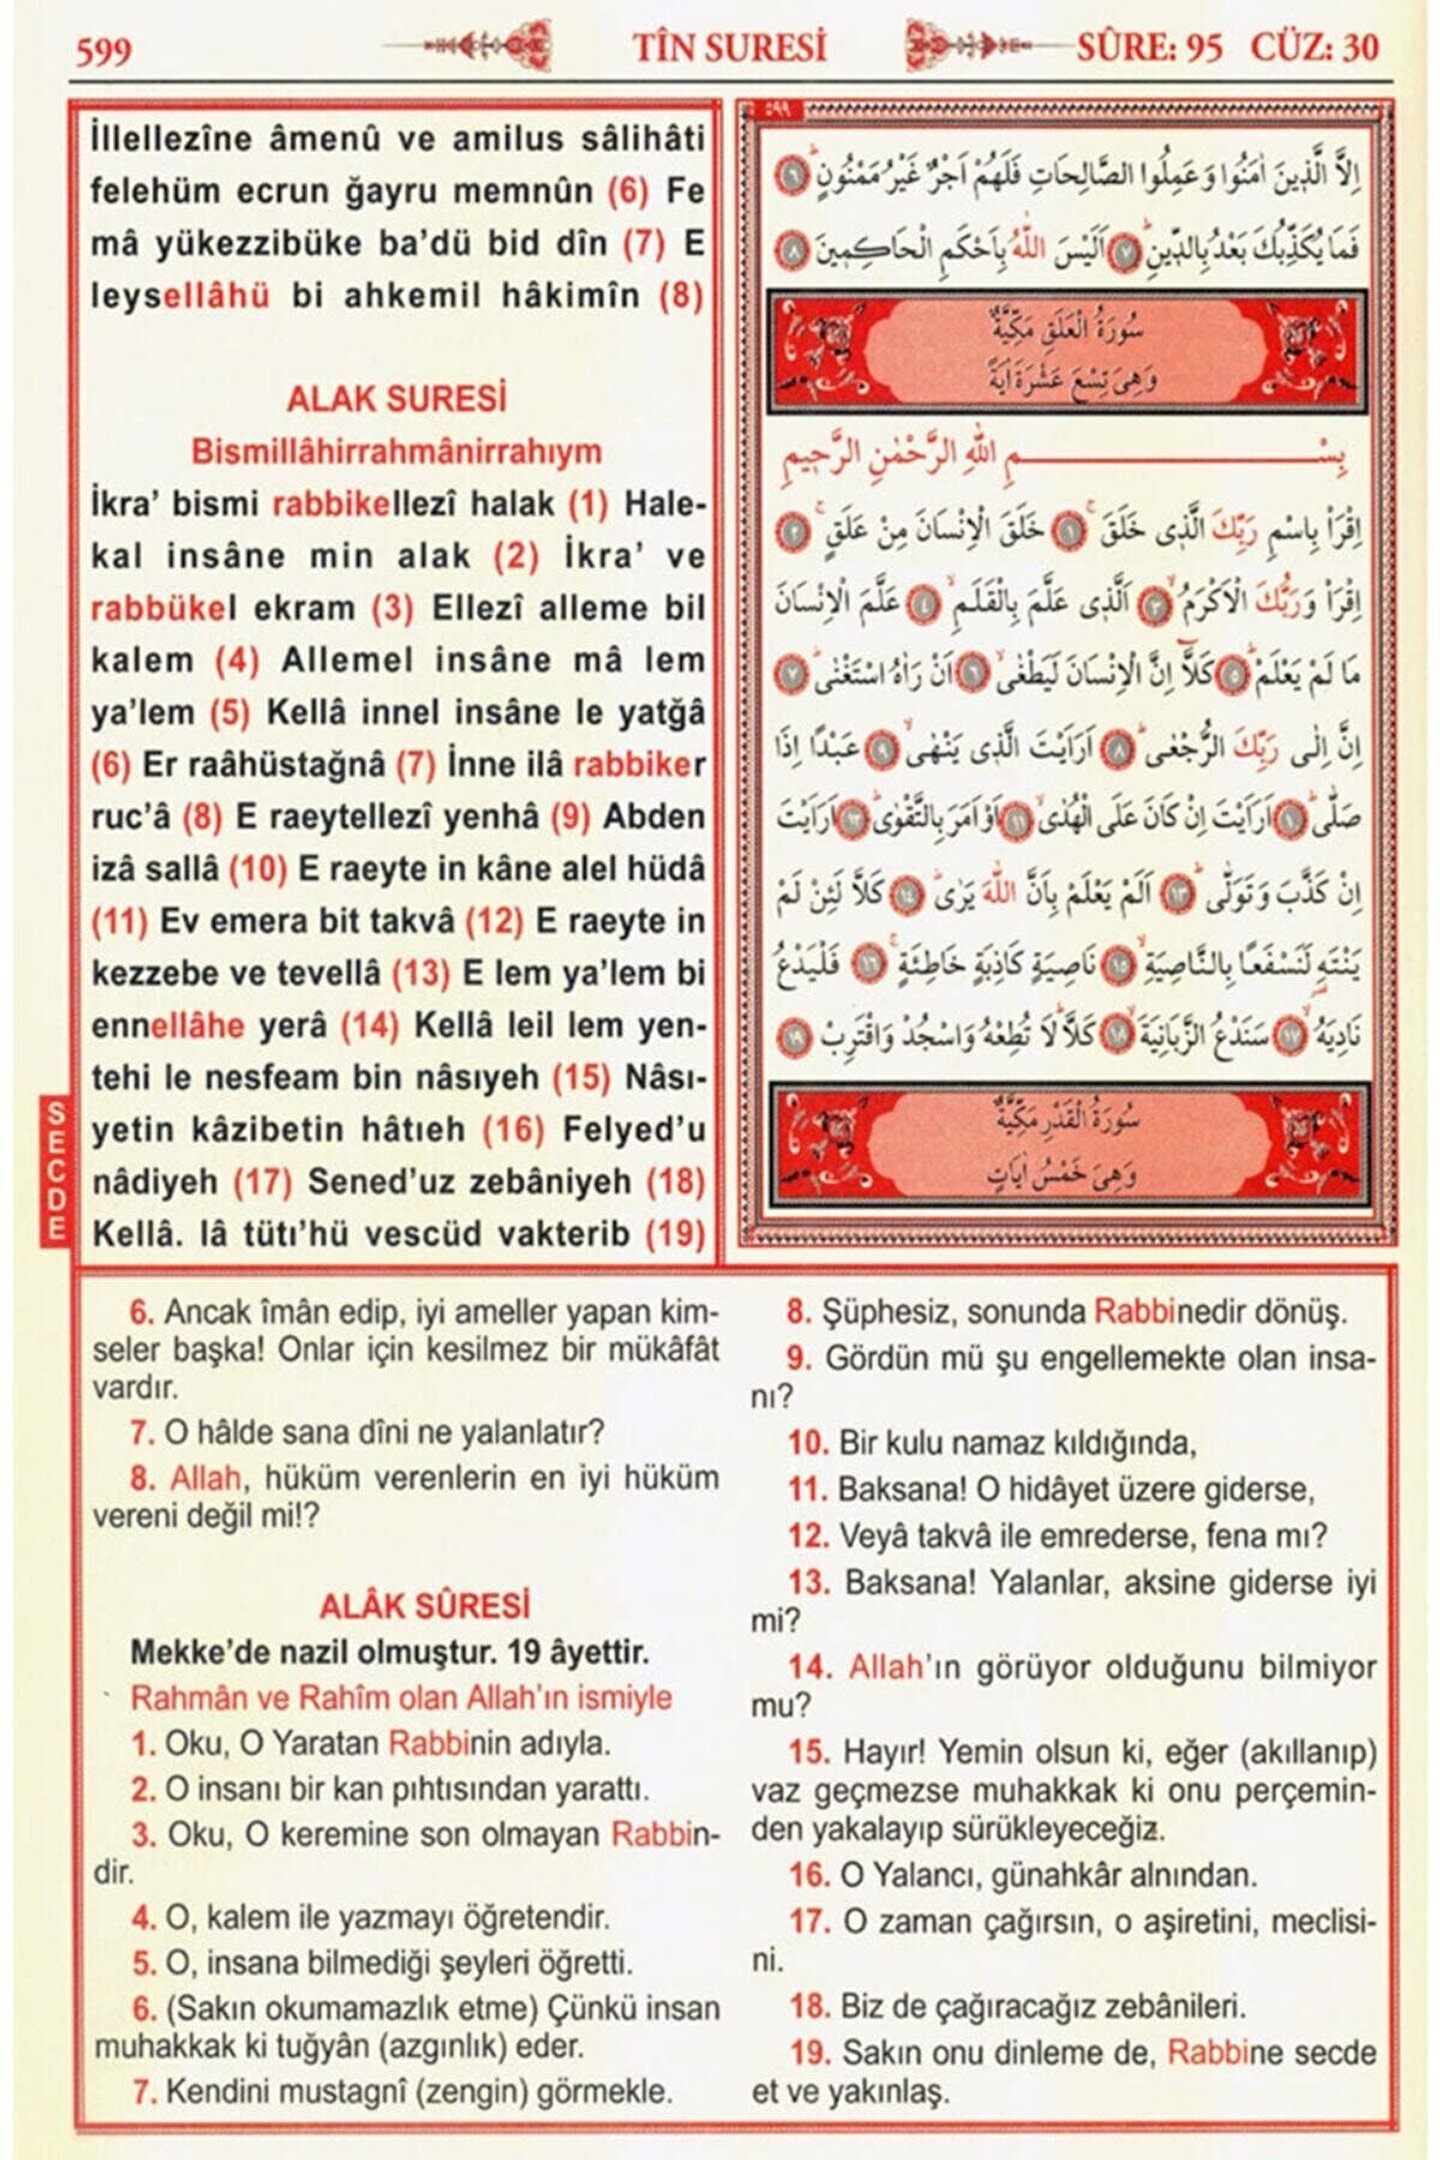 599 TÎN SURESİ SÛRE: 95 CÜZ: 30
İllellezîne âmenû ve amilus sâlihâti
felehüm ecrun ğayru memnûn (6) Fe
mâ yükezzibüke ba’dü bid dîn (7) E
leysellâhü bi ahkemil hâkimîn (8)
ALAK SURESİ
Bismillâhirrahmânirrahıym
İkra’ bismi rabbikellezî halak (1) Hale-
kal insâne min alak (2) İkra’ ve
rabbükel ekram (3) Ellezî alleme bil
kalem (4) Allemel insâne mâ lem
ya’lem (5) Kellâ innel insâne le yatğâ
(6) Er raâhüstağnâ (7) İnne ilâ rabbiker
ruc’â (8) E raeytellezî yenhâ (9) Abden
izâ sallâ (10) E raeyte in kâne alel hüdâ
(11) Ev emera bit takvâ (12) E raeyte in
kezzebe ve tevellâ (13) E lem ya’lem bi
ennellâhe yerâ (14) Kellâ leil lem yen-
tehi le nesfeam bin nâsıyeh (15) Nâsı-
yetin kâzibetin hâtıeh (16) Felyed’u
nâdiyeh (17) Sened’uz zebâniyeh (18)
Kellâ. lâ tütı’hü vescüd vakterib (19)
SECDE
٥٩٩
اِلَّا الَّذ۪ينَ اٰمَنُوا وَعَمِلُوا الصَّالِحَاتِ فَلَهُمْ اَجْرٌ غَيْرُ مَمْنُونٍۜ ٦
فَمَا يُكَذِّبُكَ بَعْدُ بِالدّ۪ينِۜ ٧ اَلَيْسَ اللّٰهُ بِاَحْكَمِ الْحَاكِم۪ينَ ٨
سُورَةُ الْعَلَقِ مَكِّيَّةٌ
وَهِىَ تِسْعَ عَشْرَةَ اٰيَةً
بِسْمِ اللّٰهِ الرَّحْمٰنِ الرَّح۪يمِ
اِقْرَاْ بِاسْمِ رَبِّكَ الَّذ۪ى خَلَقَۚ ١ خَلَقَ الْاِنْسَانَ مِنْ عَلَقٍۚ ٢
اِقْرَاْ وَرَبُّكَ الْاَكْرَمُۙ ٣ اَلَّذ۪ى عَلَّمَ بِالْقَلَمِۙ ٤ عَلَّمَ الْاِنْسَانَ
مَا لَمْ يَعْلَمْۜ ٥ كَلَّٓا اِنَّ الْاِنْسَانَ لَيَطْغٰىۙ ٦ اَنْ رَاٰهُ اسْتَغْنٰىۜ ٧
اِنَّ اِلٰى رَبِّكَ الرُّجْعٰىۜ ٨ اَرَاَيْتَ الَّذ۪ى يَنْهٰىۙ ٩ عَبْدًا اِذَا
صَلّٰىۜ ١٠ اَرَاَيْتَ اِنْ كَانَ عَلَى الْهُدٰىۙ ١١ اَوْ اَمَرَ بِالتَّقْوٰىۜ ١٢ اَرَاَيْتَ
اِنْ كَذَّبَ وَتَوَلّٰىۜ ١٣ اَلَمْ يَعْلَمْ بِاَنَّ اللّٰهَ يَرٰىۜ ١٤ كَلَّا لَئِنْ لَمْ
يَنْتَهِ لَنَسْفَعًا بِالنَّاصِيَةِۙ ١٥ نَاصِيَةٍ كَاذِبَةٍ خَاطِئَةٍۚ ١٦ فَلْيَدْعُ
نَادِيَهُۙ ١٧ سَنَدْعُ الزَّبَانِيَةَۙ ١٨ كَلَّاۜ لَا تُطِعْهُ وَاسْجُدْ وَاقْتَرِبْ ١٩
سُورَةُ الْقَدْرِ مَكِّيَّةٌ
وَهِىَ خَمْسُ اٰيَاتٍ
6. Ancak îmân edip, iyi ameller yapan kim-
seler başka! Onlar için kesilmez bir mükâfât
vardır.
7. O hâlde sana dîni ne yalanlatır?
8. Allah, hüküm verenlerin en iyi hüküm
vereni değil mi!?
ALÂK SÛRESİ
Mekke’de nazil olmuştur. 19 âyettir.
Rahmân ve Rahîm olan Allah’ın ismiyle
1. Oku, O Yaratan Rabbinin adıyla.
2. O insanı bir kan pıhtısından yarattı.
3. Oku, O keremine son olmayan Rabbin-
dir.
4. O, kalem ile yazmayı öğretendir.
5. O, insana bilmediği şeyleri öğretti.
6. (Sakın okumamazlık etme) Çünkü insan
muhakkak ki tuğyân (azgınlık) eder.
7. Kendini mustagnî (zengin) görmekle.
8. Şüphesiz, sonunda Rabbinedir dönüş.
9. Gördün mü şu engellemekte olan insa-
nı?
10. Bir kulu namaz kıldığında,
11. Baksana! O hidâyet üzere giderse,
12. Veyâ takvâ ile emrederse, fena mı?
13. Baksana! Yalanlar, aksine giderse iyi
mi?
14. Allah’ın görüyor olduğunu bilmiyor
mu?
15. Hayır! Yemin olsun ki, eğer (akıllanıp)
vaz geçmezse muhakkak ki onu perçemin-
den yakalayıp sürükleyeceğiz.
16. O Yalancı, günahkâr alnından.
17. O zaman çağırsın, o aşiretini, meclisi-
ni.
18. Biz de çağıracağız zebânileri.
19. Sakın onu dinleme de, Rabbine secde
et ve yakınlaş.